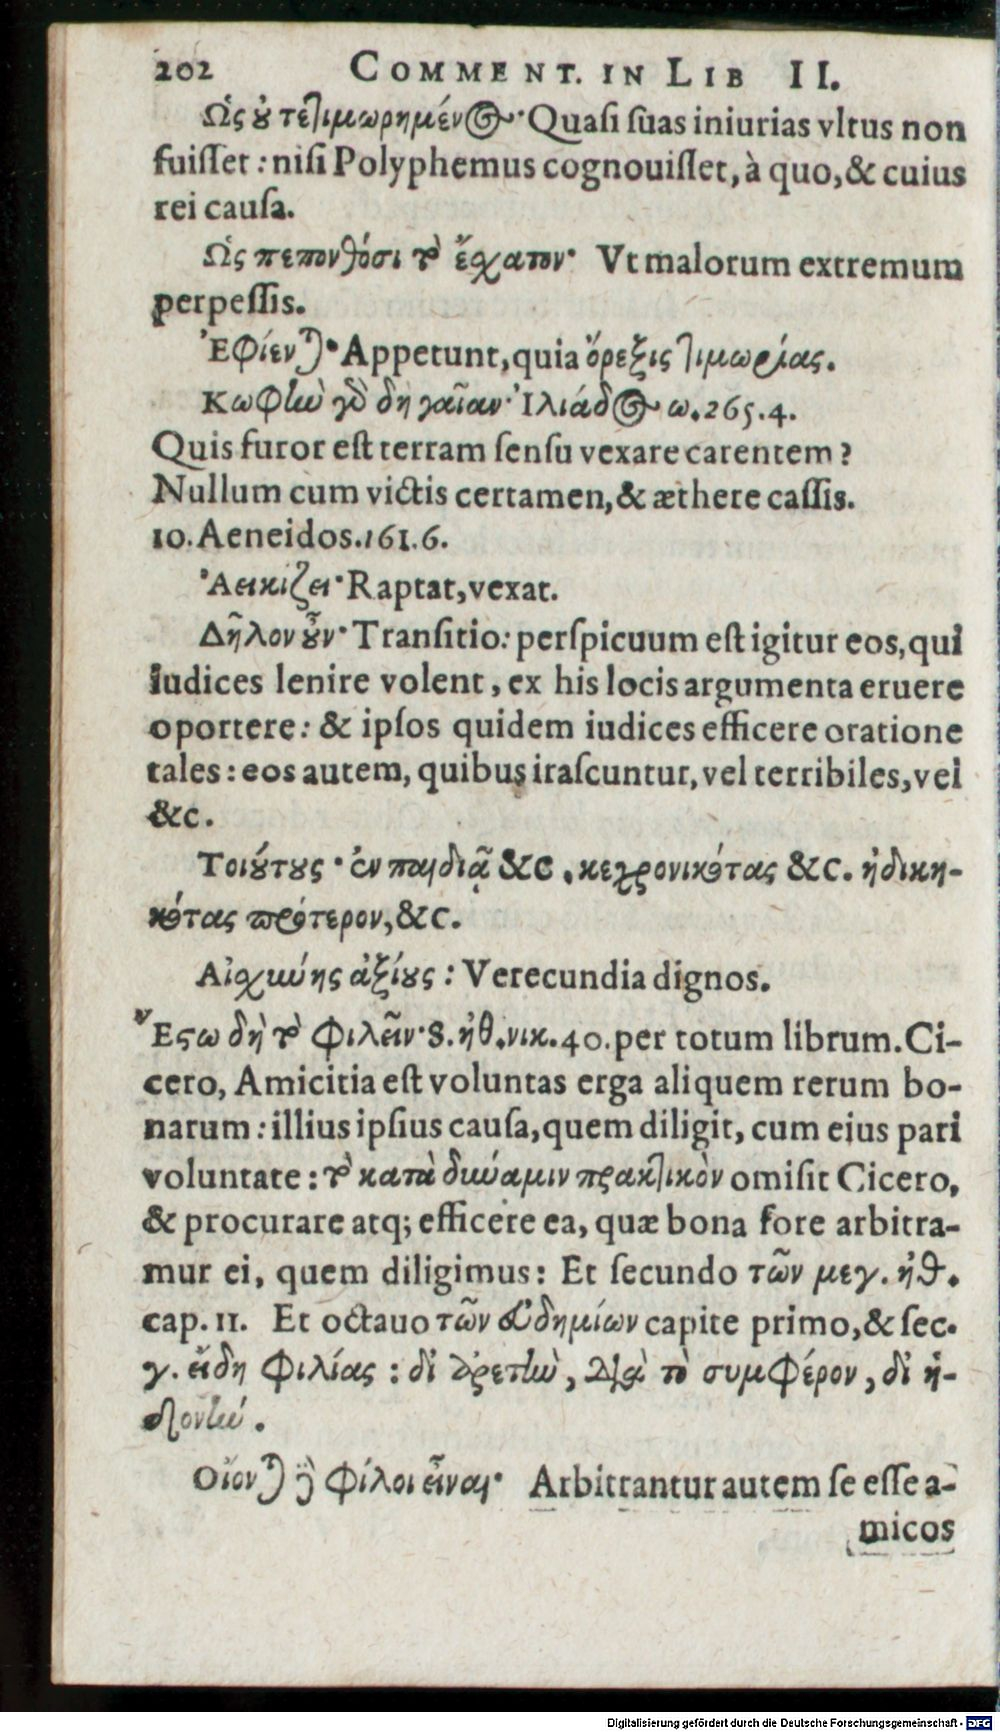 202 COMMENT. IN LIB II.
Ὡς ȣ̓ τετιμωρημένος· Quasi suas iniurias vltus non
fuisset: nisi Polyphemus cognouisset, à quo, & cuius
rei causa.
Ὡς πεπονθόσι τὸ ἔχατον· Vt malorum extremum
perpessis.
Ἐφίενται· Appetunt, quia ὄρεξις τιμωρίας.
Κωφὴν γὰρ δὴ γαῖαν· Ἰλιάδος ω. 265. 4.
Quis furor est terram sensu vexare carentem?
Nullum cum victis certamen, & æthere cassis.
10. Aeneidos. 161. 6.
Ἀεικίζει· Raptat, vexat.
Δῆλον ȣ̓͂ν· Transitio: perspicuum est igitur eos, qui
iudices lenire volent, ex his locis argumenta eruere
oportere: & ipsos quidem iudices efficere oratione
tales: eos autem, quibus irascuntur, vel terribiles, vel
&c.
Τοιȣ́τȣς· ἐν παιδιᾷ &c. κεχρονικότας &c. ἠδικη-
κότας πρότερον, &c.
Αἰχύνης ἀξίȣς: Verecundia dignos.
Ἔστω δὴ τὸ φιλεῖν· 8. ἠθ. νικ. 40. per totum librum. Ci-
cero, Amicitia est voluntas erga aliquem rerum bo-
narum: illius ipsius causa, quem diligit, cum eius pari
voluntate: τὸ κατὰ δύναμιν πρακτικὸν omisit Cicero,
& procurare atq; efficere ea, quæ bona fore arbitra-
mur ei, quem diligimus: Et secundo τῶν μεγ. ἠθ.
cap. 11. Et octauo τῶν εὐδημίων capite primo, & sec.
γ. εἴδη φιλίας: δι' ἀρετὴν, διὰ τὸ συμφέρον, δι' ἡ-
δονήν.
Οἴονται δὲ φίλοι εἶναι· Arbitrantur autem se esse a-
micos
Digitalisierung gefördert durch die Deutsche Forschungsgemeinschaft - DFG